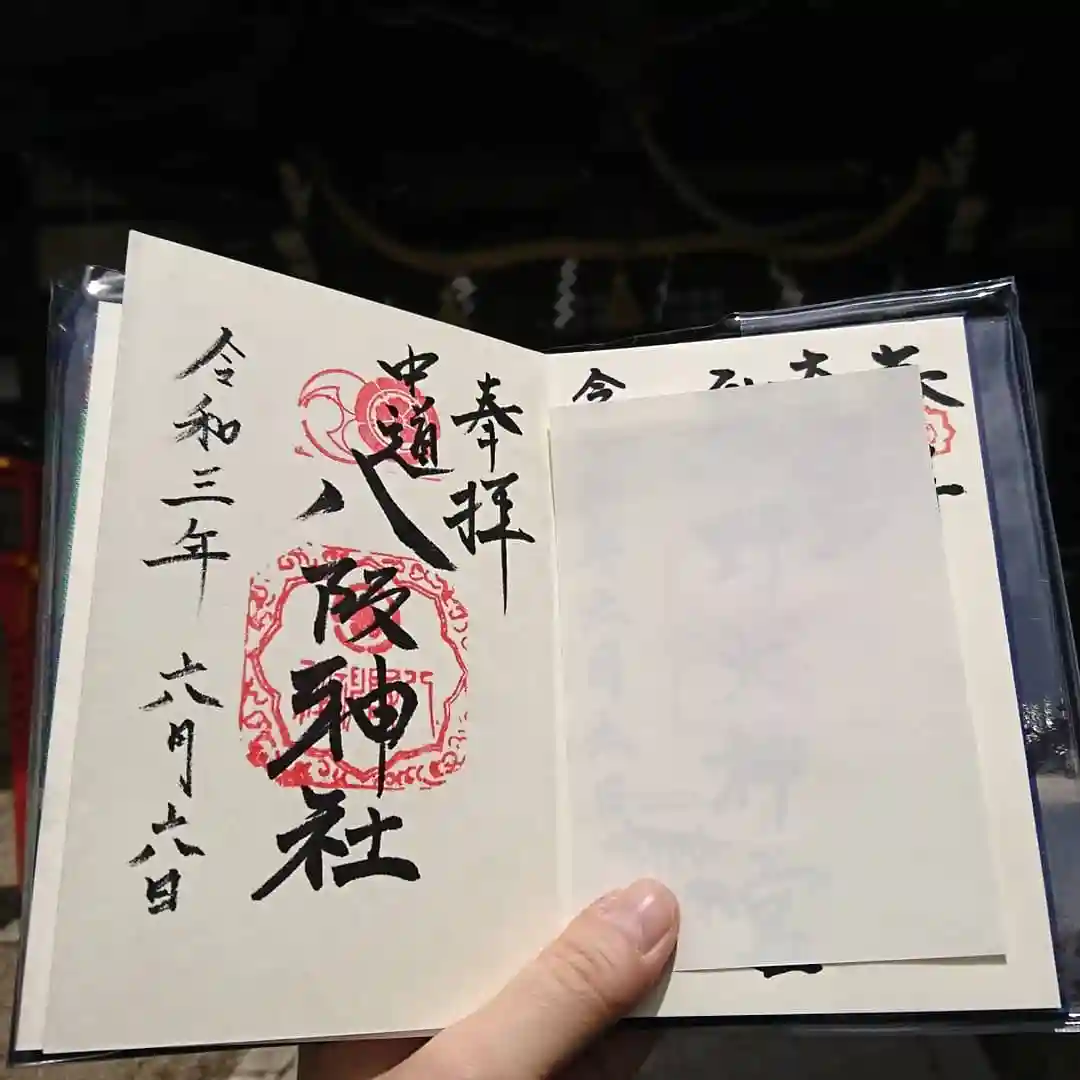 奉拝
中道
八阪神社
令和三年 六月六日
奉
令